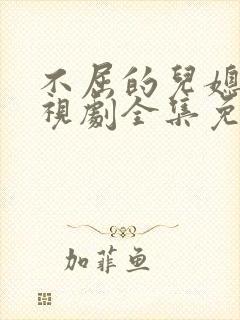 不屈的兒媳
視劇全集免
加菲鱼